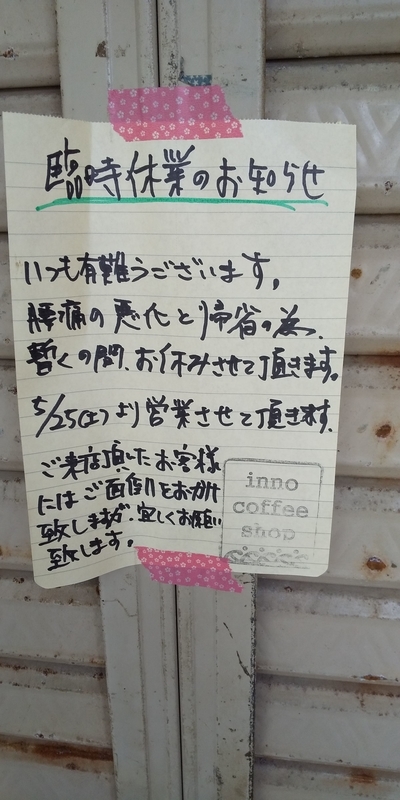 臨時休業のお知らせ
いつも有難うございます。
腰痛の悪化と帰省の為、
暫くの間、お休みさせて頂きます。
5/25(土)より営業させて頂きます。
ご来店頂いたお客様
にはご面倒をおかけ
致しますが、宜しくお願い
致します。
inno
coffee
shop